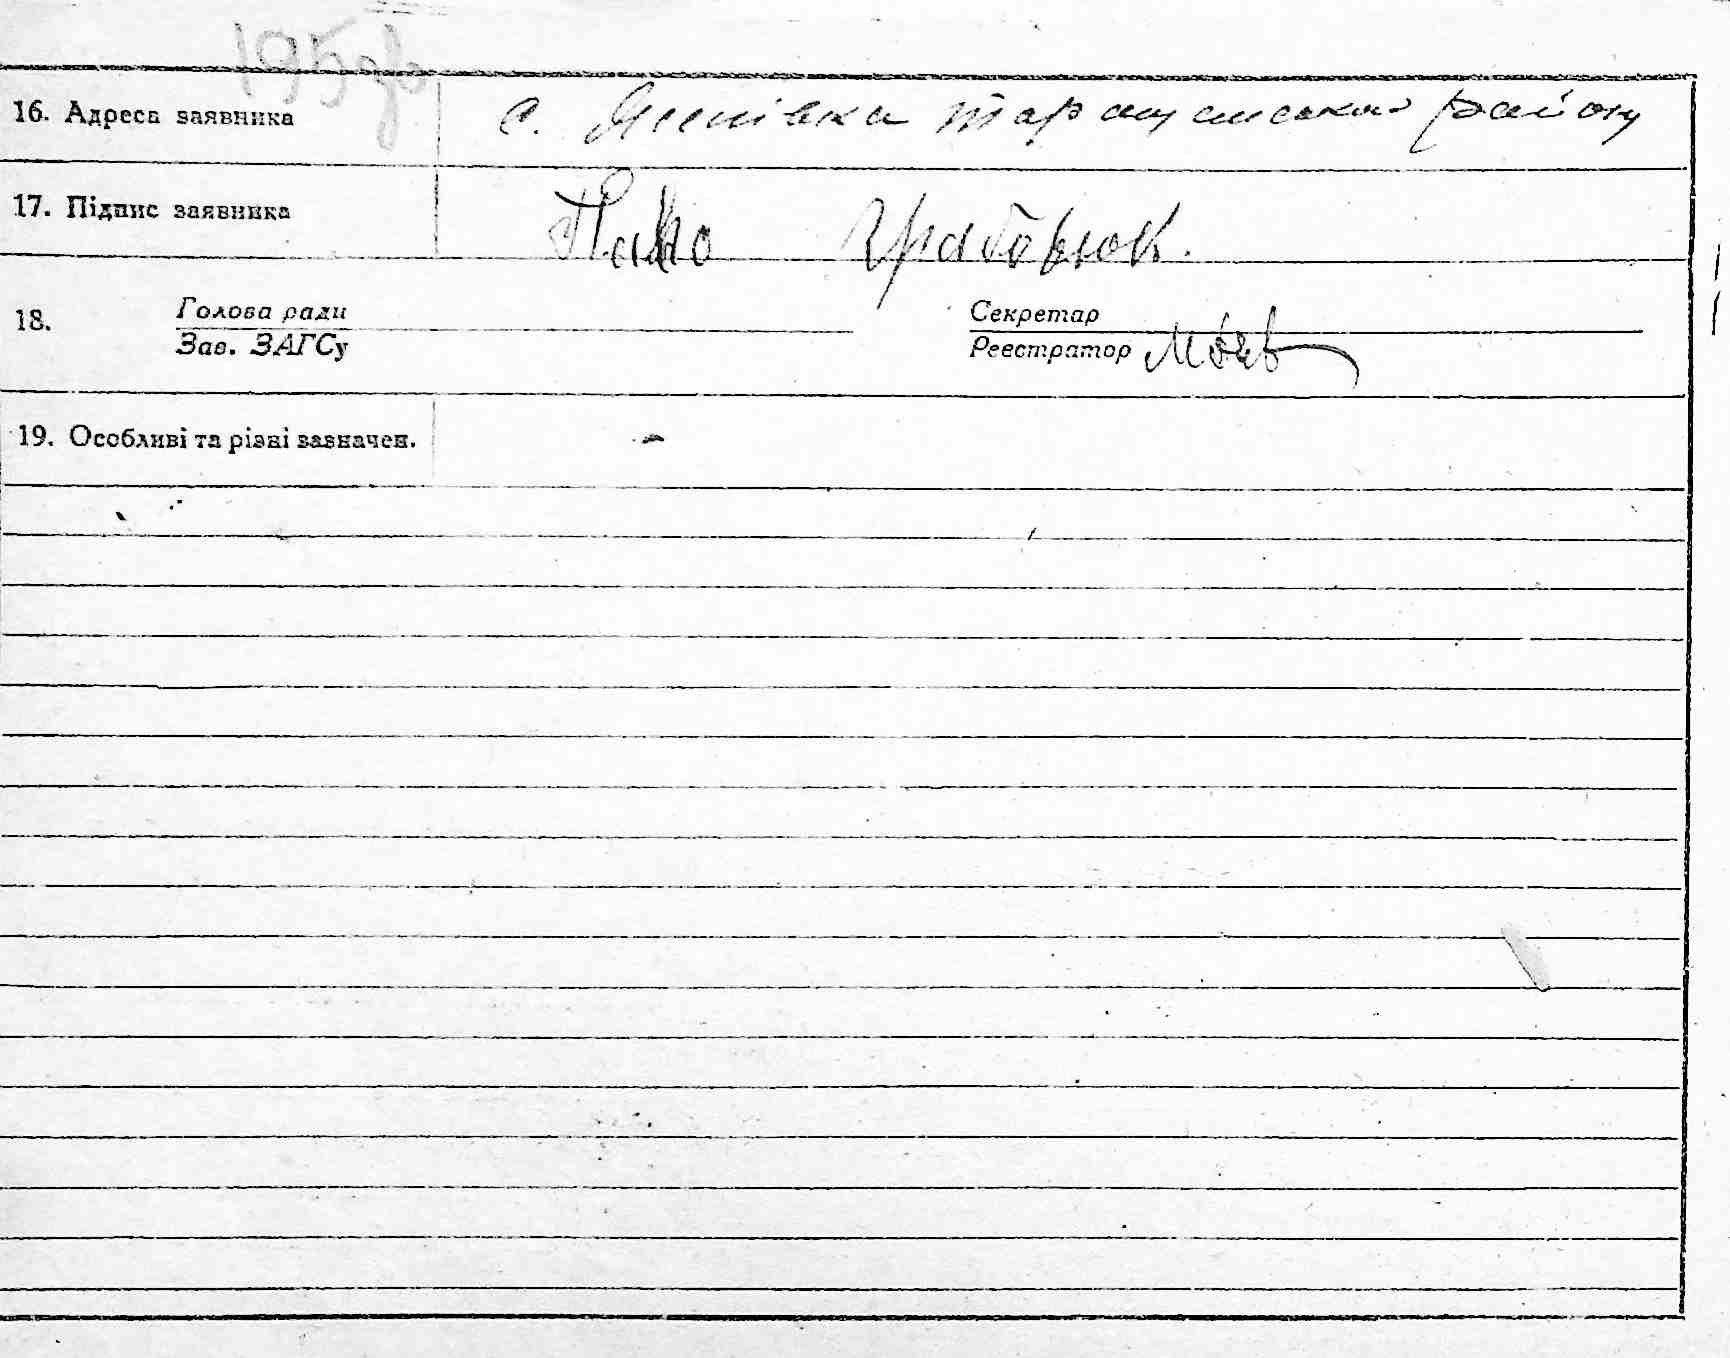 16. Адреса заявника с. Лисівка Таращанського району
17. Підпис заявника Грабовюк.
18. Голова ради Секретар
Зав. ЗАГСу Реєстратор
19. Особливі та різні зазначен. -